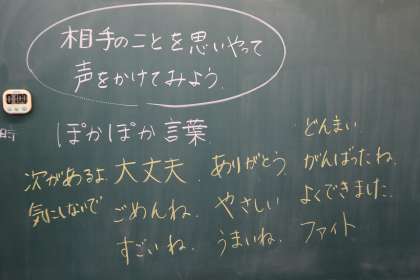 相手のことを思いやって
声をかけてみよう。
時
ぽかぽか言葉
どんまい
次があるよ 大丈夫 ありがとう がんばったね
気にしないで ごめんね やさしい よくできました
すごいね うまいね ファイト